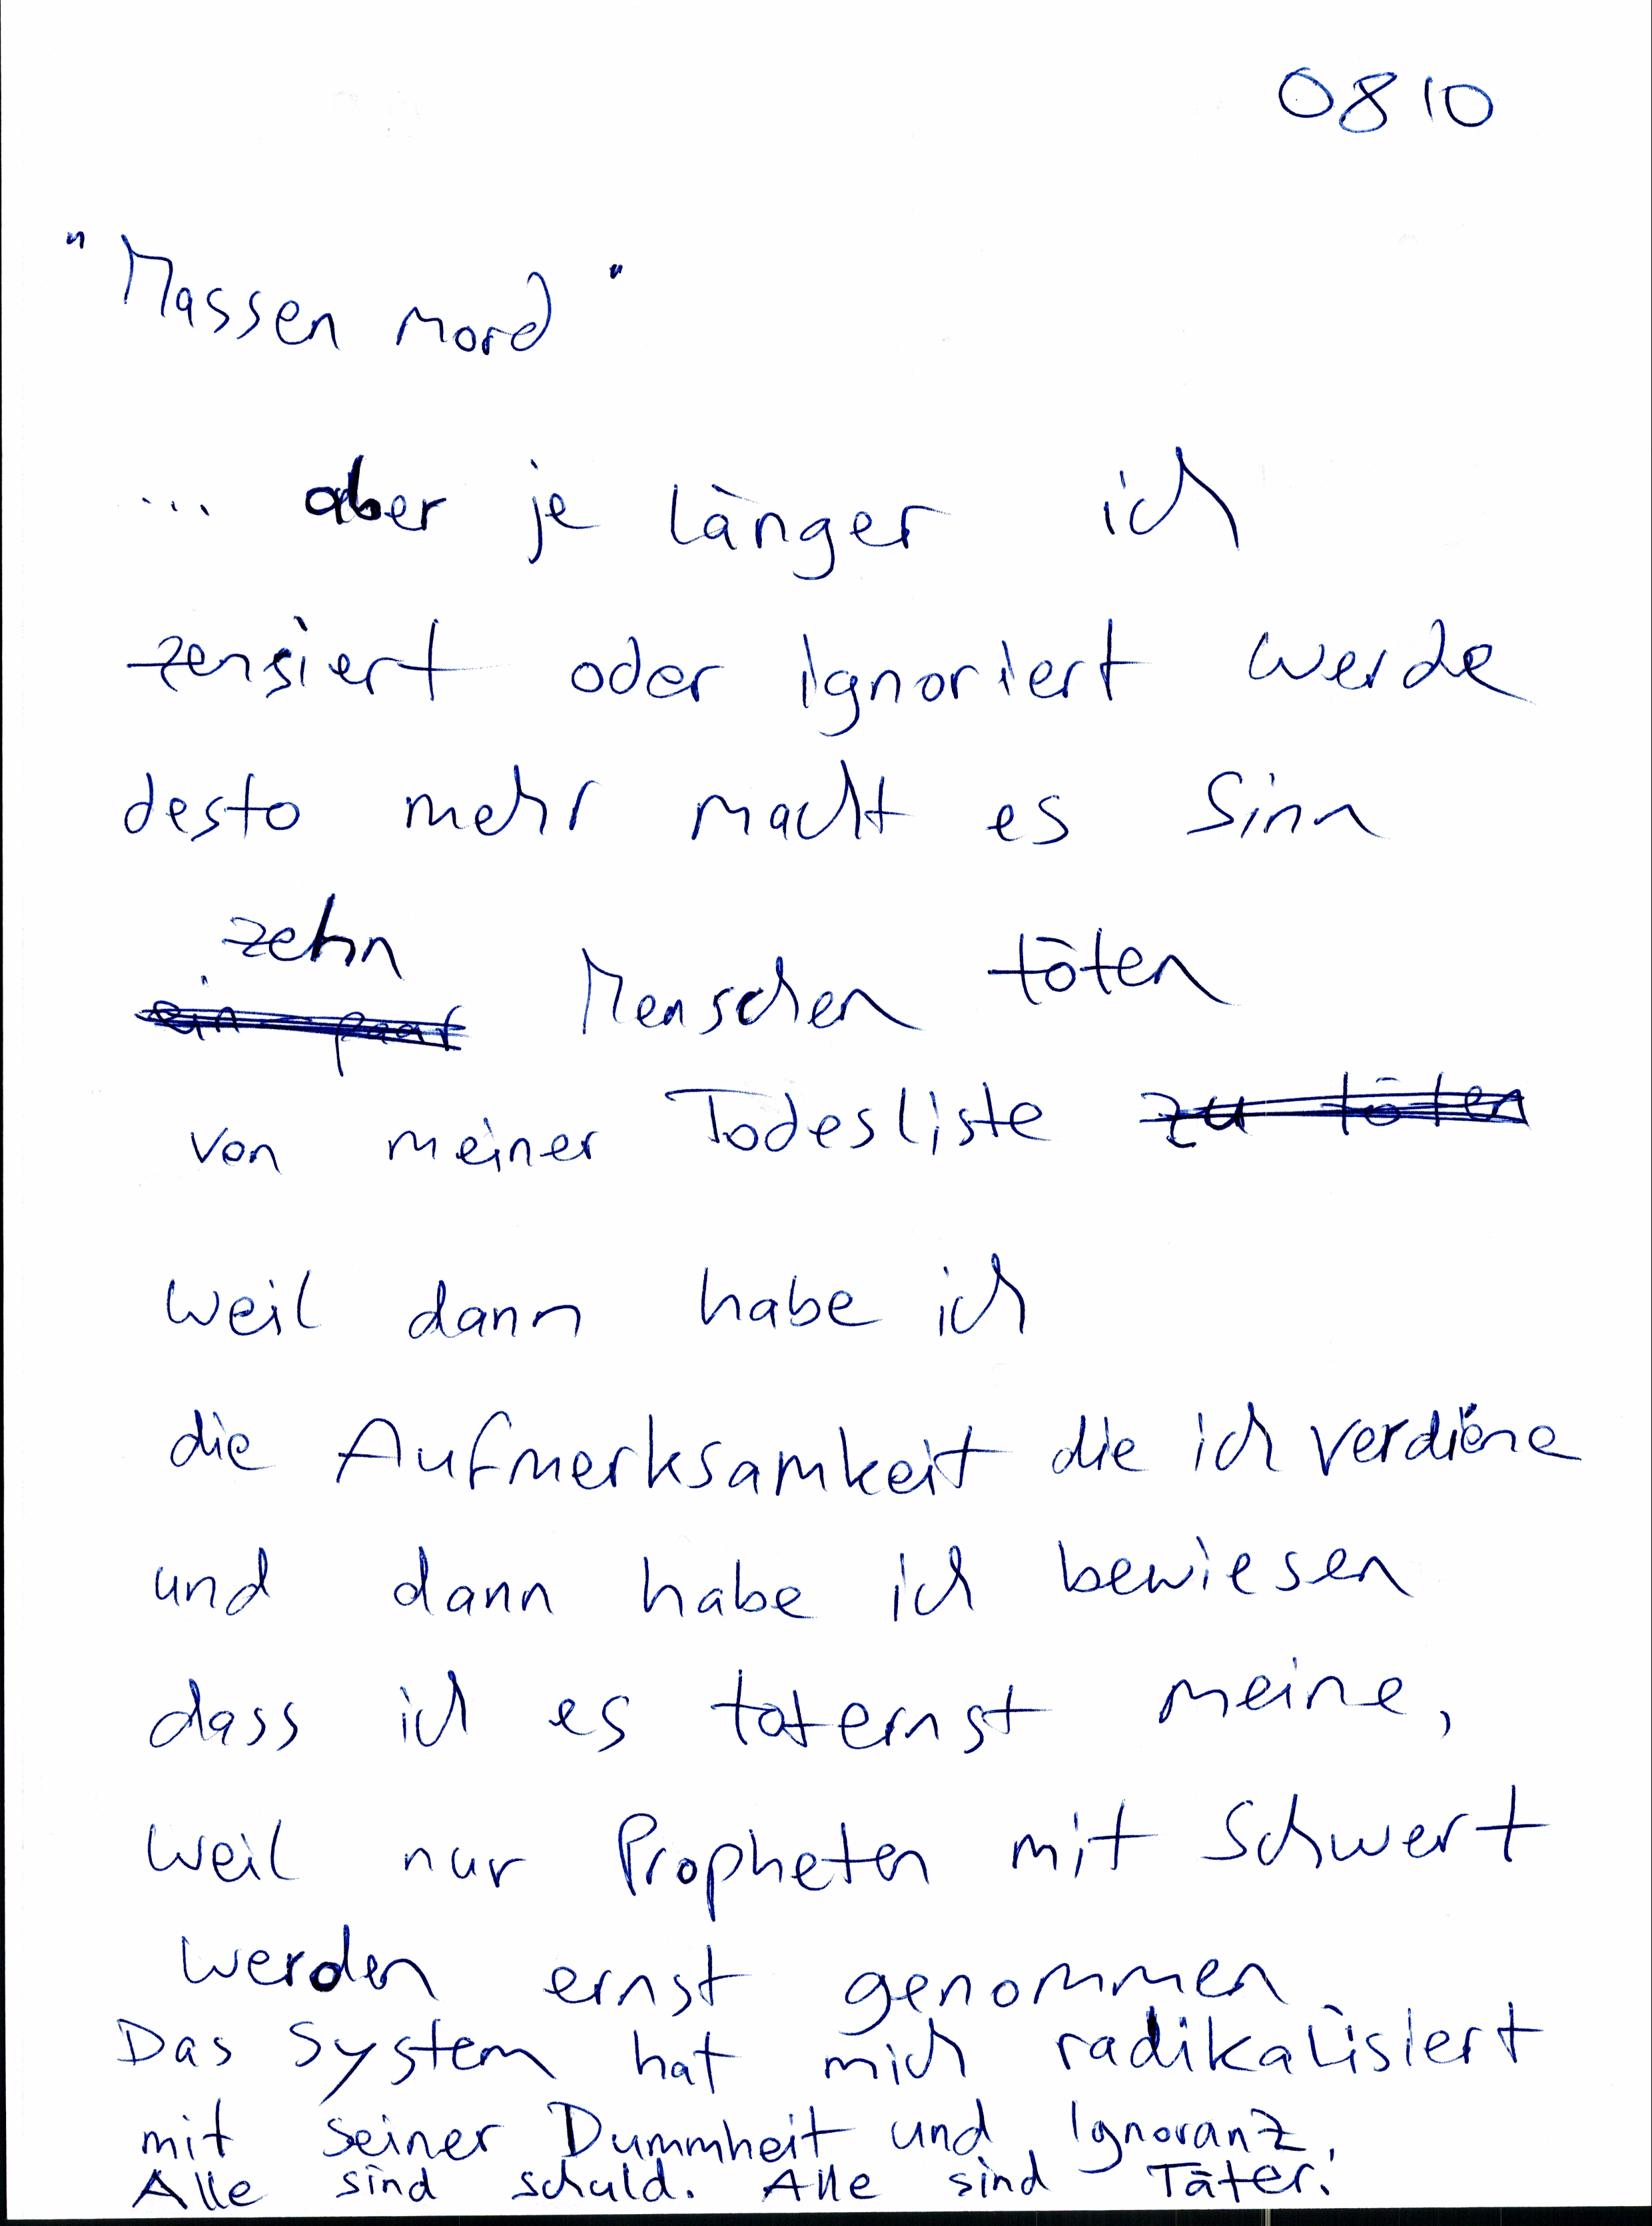 0810
"Massen mord"
... aber je länger ich
zensiert oder ignoriert werde
desto mehr macht es Sinn
zehn
ein paar Menschen töten
von meiner Todesliste zu töten
weil dann habe ich
die Aufmerksamkeit die ich verdiene
und dann habe ich bewiesen
dass ich es toternst meine,
weil nur Propheten mit Schwert
werden ernst genommen
Das System hat mich radikalisiert
mit seiner Dummheit und Ignoranz.
Alle sind schuld. Alle sind Täter!